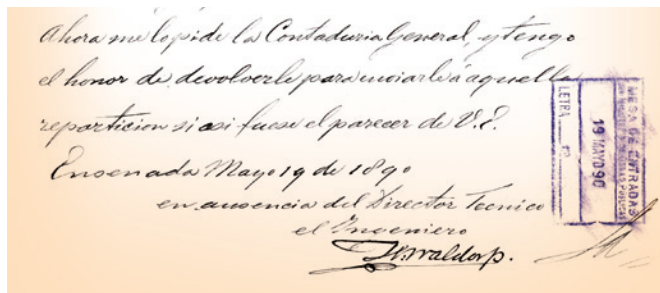 Ahora me lo pide la Contaduria General, y tengo
el honor de devolverle para enviarle á aquella
reparticion si asi fuese el parecer de V.E.
Ensenada Mayo 19 de 1890
en ausencia del Director Tecnico
el Ingeniero
J. Waldorp.
MESA DE ENTRADAS
OBRAS PUBLICAS
19 MAYO 90
LETRA